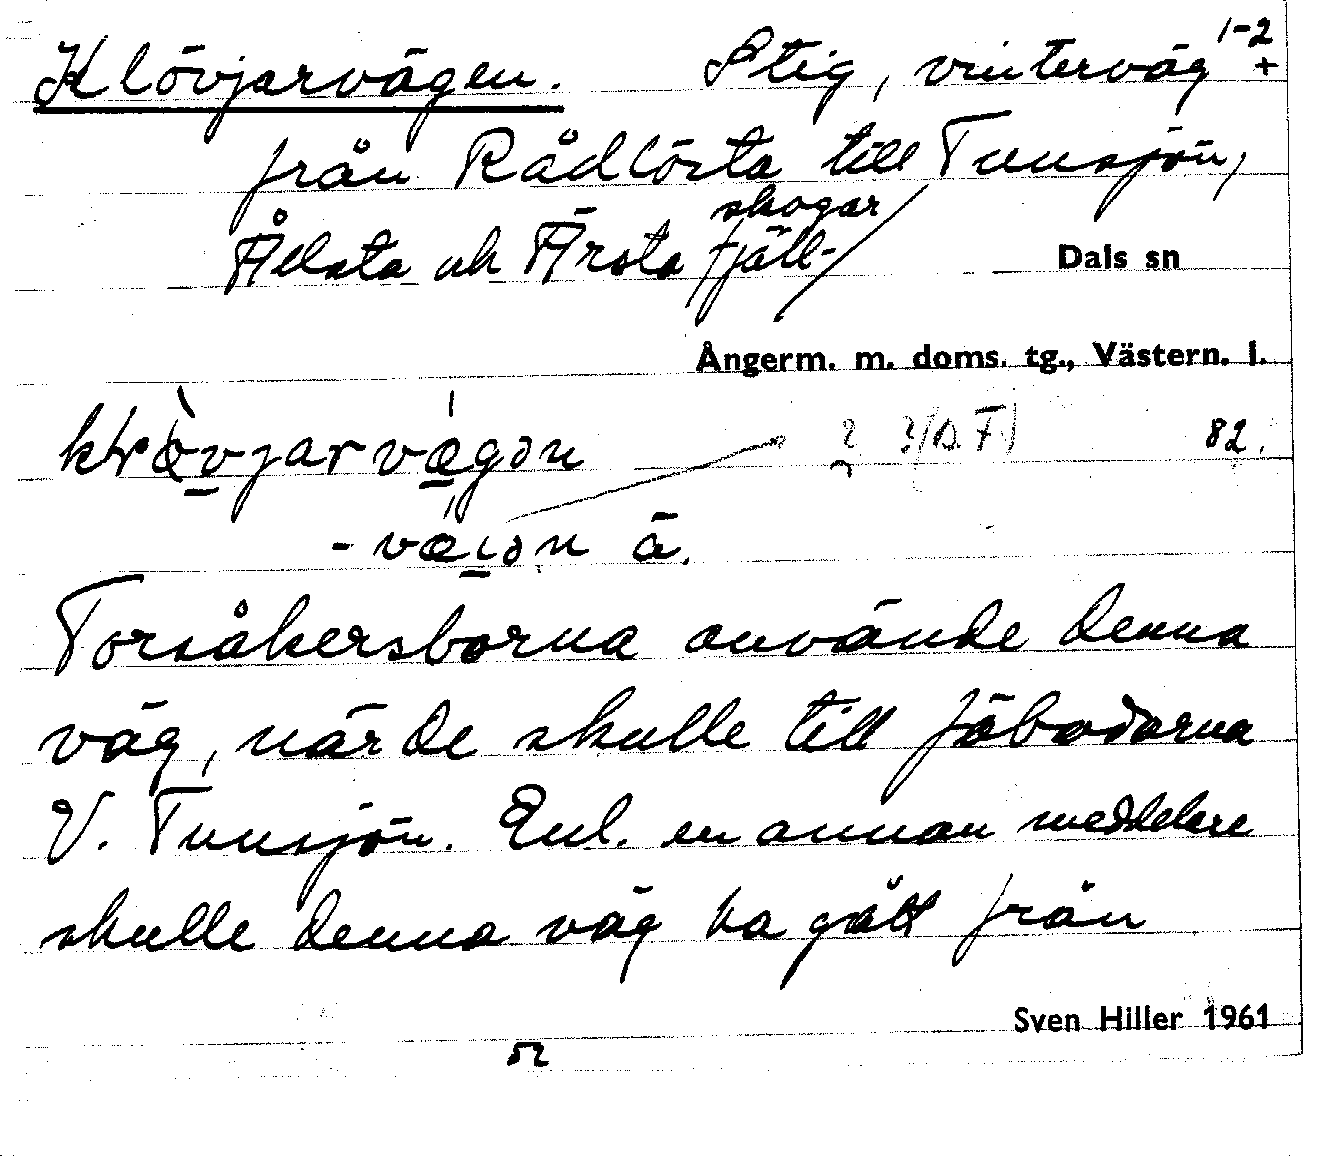 Klövjarvägen. Stig, vinterväg 1-2 +
från Rådlösta till Tunsjön,
skogar
Ållsta och Ärsta fjäll-/
Dals sn
Ångerm. m. doms. tg., Västern. l.
82.
-væıən ä.
Torsåkersborna använde denna
väg, när de skulle till fäbodarna
V. Tunsjön. Enl. en annan meddelare
skulle denna väg ha gått från
Sven Hiller 1961